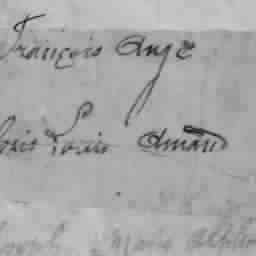 François Ange
Louis Amand
Joseph Marie